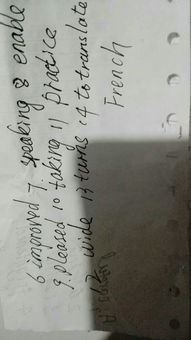 6 improved 7. speaking 8 enable
9. pleased 10 taking 11 practice
12 wide 13 turns 14 to translate
French